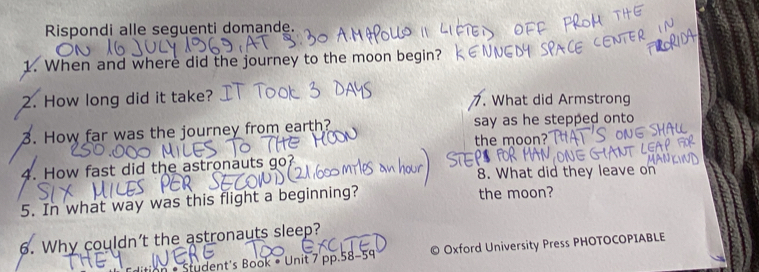 Rispondi alle seguenti domande.
ON 16 JULY 1969, AT 9:30 A.M APOLLO 11 LIFTED OFF FROM THE
1. When and where did the journey to the moon begin? KENNEDY SPACE CENTER IN FLORIDA
2. How long did it take? IT TOOK 3 DAYS
3. How far was the journey from earth?
250.000 MILES TO THE MOON
4. How fast did the astronauts go?
SIX MILES PER SECOND (21,600 miles an hour)
5. In what way was this flight a beginning?
6. Why couldn't the astronauts sleep?
THEY WERE TOO EXCITED
Edition • Student's Book • Unit 7 pp.58-59
7. What did Armstrong
say as he stepped onto
the moon? THAT'S ONE SMALL
STEP FOR MAN, ONE GIANT LEAP FOR
MANKIND
8. What did they leave on
the moon?
© Oxford University Press PHOTOCOPIABLE